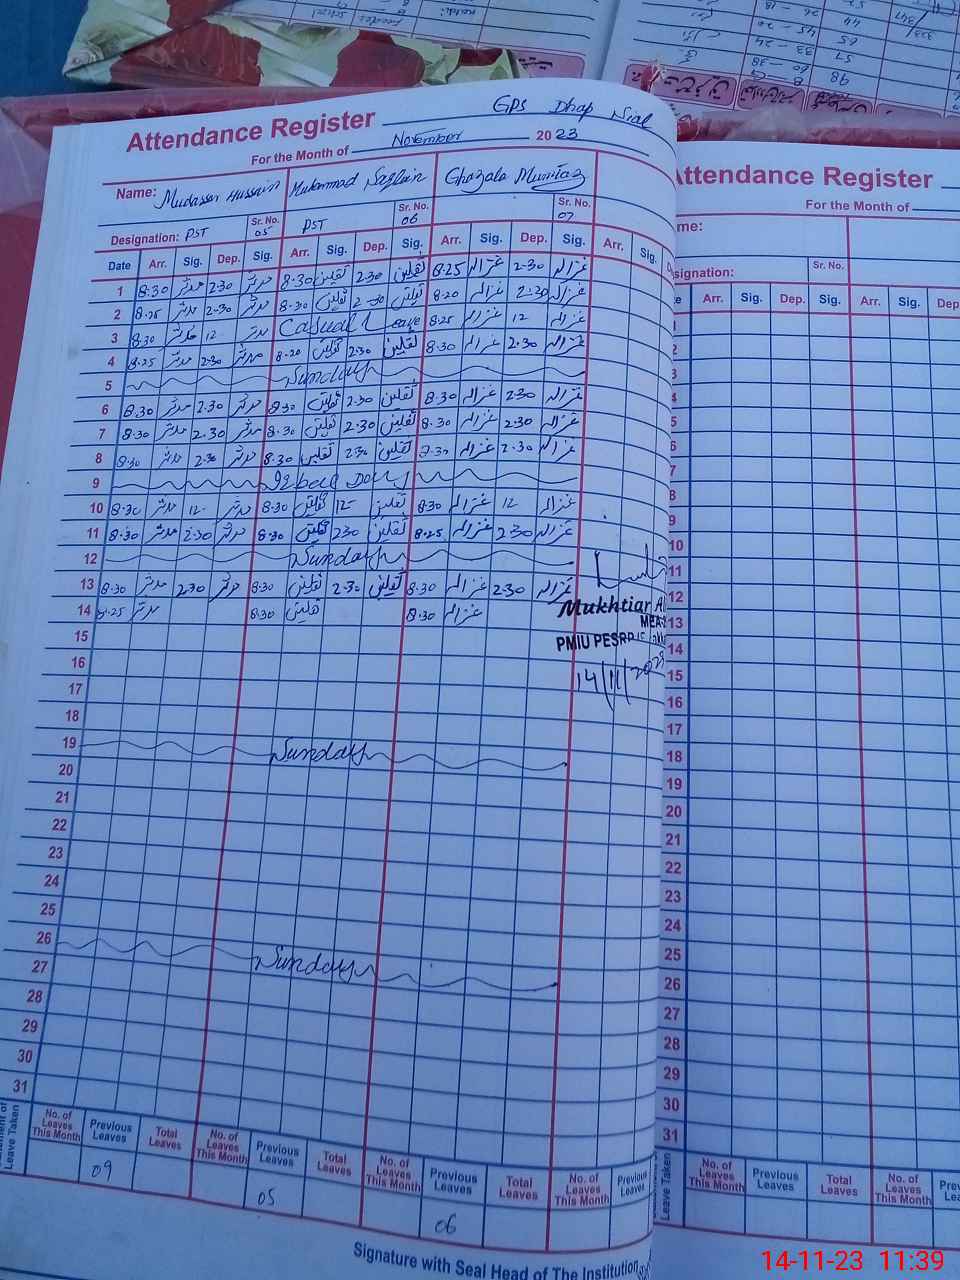 GPS Dhap Nial
Attendance Register
For the Month of November 2023
Name: Mudassar Hussain Muhammad Saqlain Ghazala Mumtaz
Sr. No. 05 Sr. No. 06 Sr. No. 07
Designation: PST PST
Date Arr. Sig. Dep. Sig. Arr. Sig. Dep. Sig. Arr. Sig. Dep. Sig. Arr. Sig.
1 8:30 مدثر 2:30 مدثر 8:30 ثقلین 2:30 ثقلین 8:25 غزالہ 2:30 غزالہ
2 8:25 مدثر 2:30 مدثر 8:30 ثقلین 2:30 ثقلین 8:20 غزالہ 2:30 غزالہ
3 8:30 مدثر 12 مدثر Casual Leave 8:25 غزالہ 12 غزالہ
4 8:25 مدثر 2:30 مدثر 8:20 ثقلین 2:30 ثقلین 8:30 غزالہ 2:30 غزالہ
5 Sunday
6 8:30 مدثر 2:30 مدثر 8:30 ثقلین 2:30 ثقلین 8:30 غزالہ 2:30 غزالہ
7 8:30 مدثر 2:30 مدثر 8:30 ثقلین 2:30 ثقلین 8:30 غزالہ 2:30 غزالہ
8 8:30 مدثر 2:30 مدثر 8:30 ثقلین 2:30 ثقلین غزالہ 2:30 غزالہ
9 Iqbal Day
10 8:30 مدثر 12 مدثر 8:30 ثقلین 12 ثقلین 8:30 غزالہ 12 غزالہ
11 8:30 مدثر 2:30 مدثر 8:30 ثقلین 2:30 ثقلین 8:25 غزالہ 2:30 غزالہ
12 Sunday
13 8:30 مدثر 2:30 مدثر 8:30 ثقلین 2:30 ثقلین 8:30 غزالہ 2:30 غزالہ
14 8:25 مدثر 8:30 ثقلین 8:30 غزالہ
Mukhtiar
MEA
PMIU PESRP
14/11/2023
15
16
17
18
19 Sunday
20
21
22
23
24
25
26 Sunday
27
28
29
30
31
Leave Taken
No. of Leaves This Month Previous Leaves Total Leaves No. of Leaves This Month Previous Leaves Total Leaves No. of Leaves This Month Previous Leaves Total Leaves No. of Leaves This Month Previous Leaves
09 05 06
Signature with Seal Head of The Institution
Attendance Register
For the Month of
Sr. No.
Arr. Sig. Dep. Sig. Arr. Sig.
11
12
13
14
15
16
17
18
19
20
21
22
23
24
25
26
27
28
29
30
31
Leave Taken
No. of Leaves This Month Previous Leaves Total Leaves No. of Leaves This Month
14-11-23 11:39